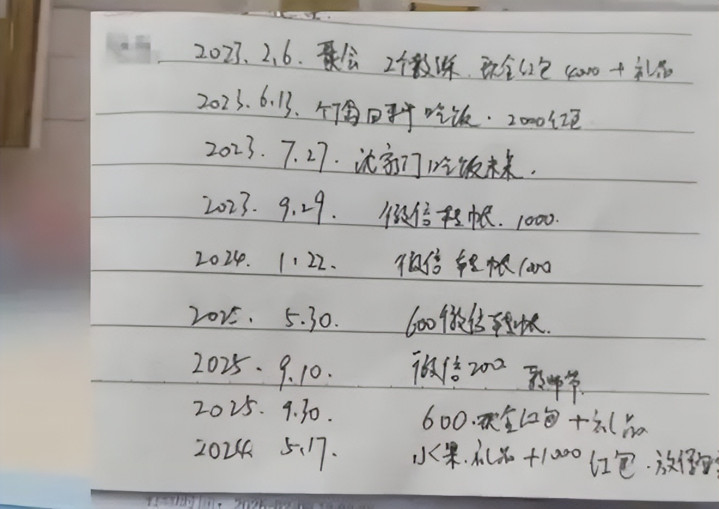 2023.2.6. 聚会 2个教练.现金红包 4000 + 礼品
2023.6.13. 吃饭.2000红包
2023.7.27. 沈家门吃饭未来.
2023.9.29. 微信转帐.1000.
2024.1.22. 微信转帐1000
2025.5.30. 600微信转帐.
2025.9.10. 微信200 教师节
2025.9.30. 600.现金红包+礼品
2024.5.17. 水果.礼品+1000红包.放